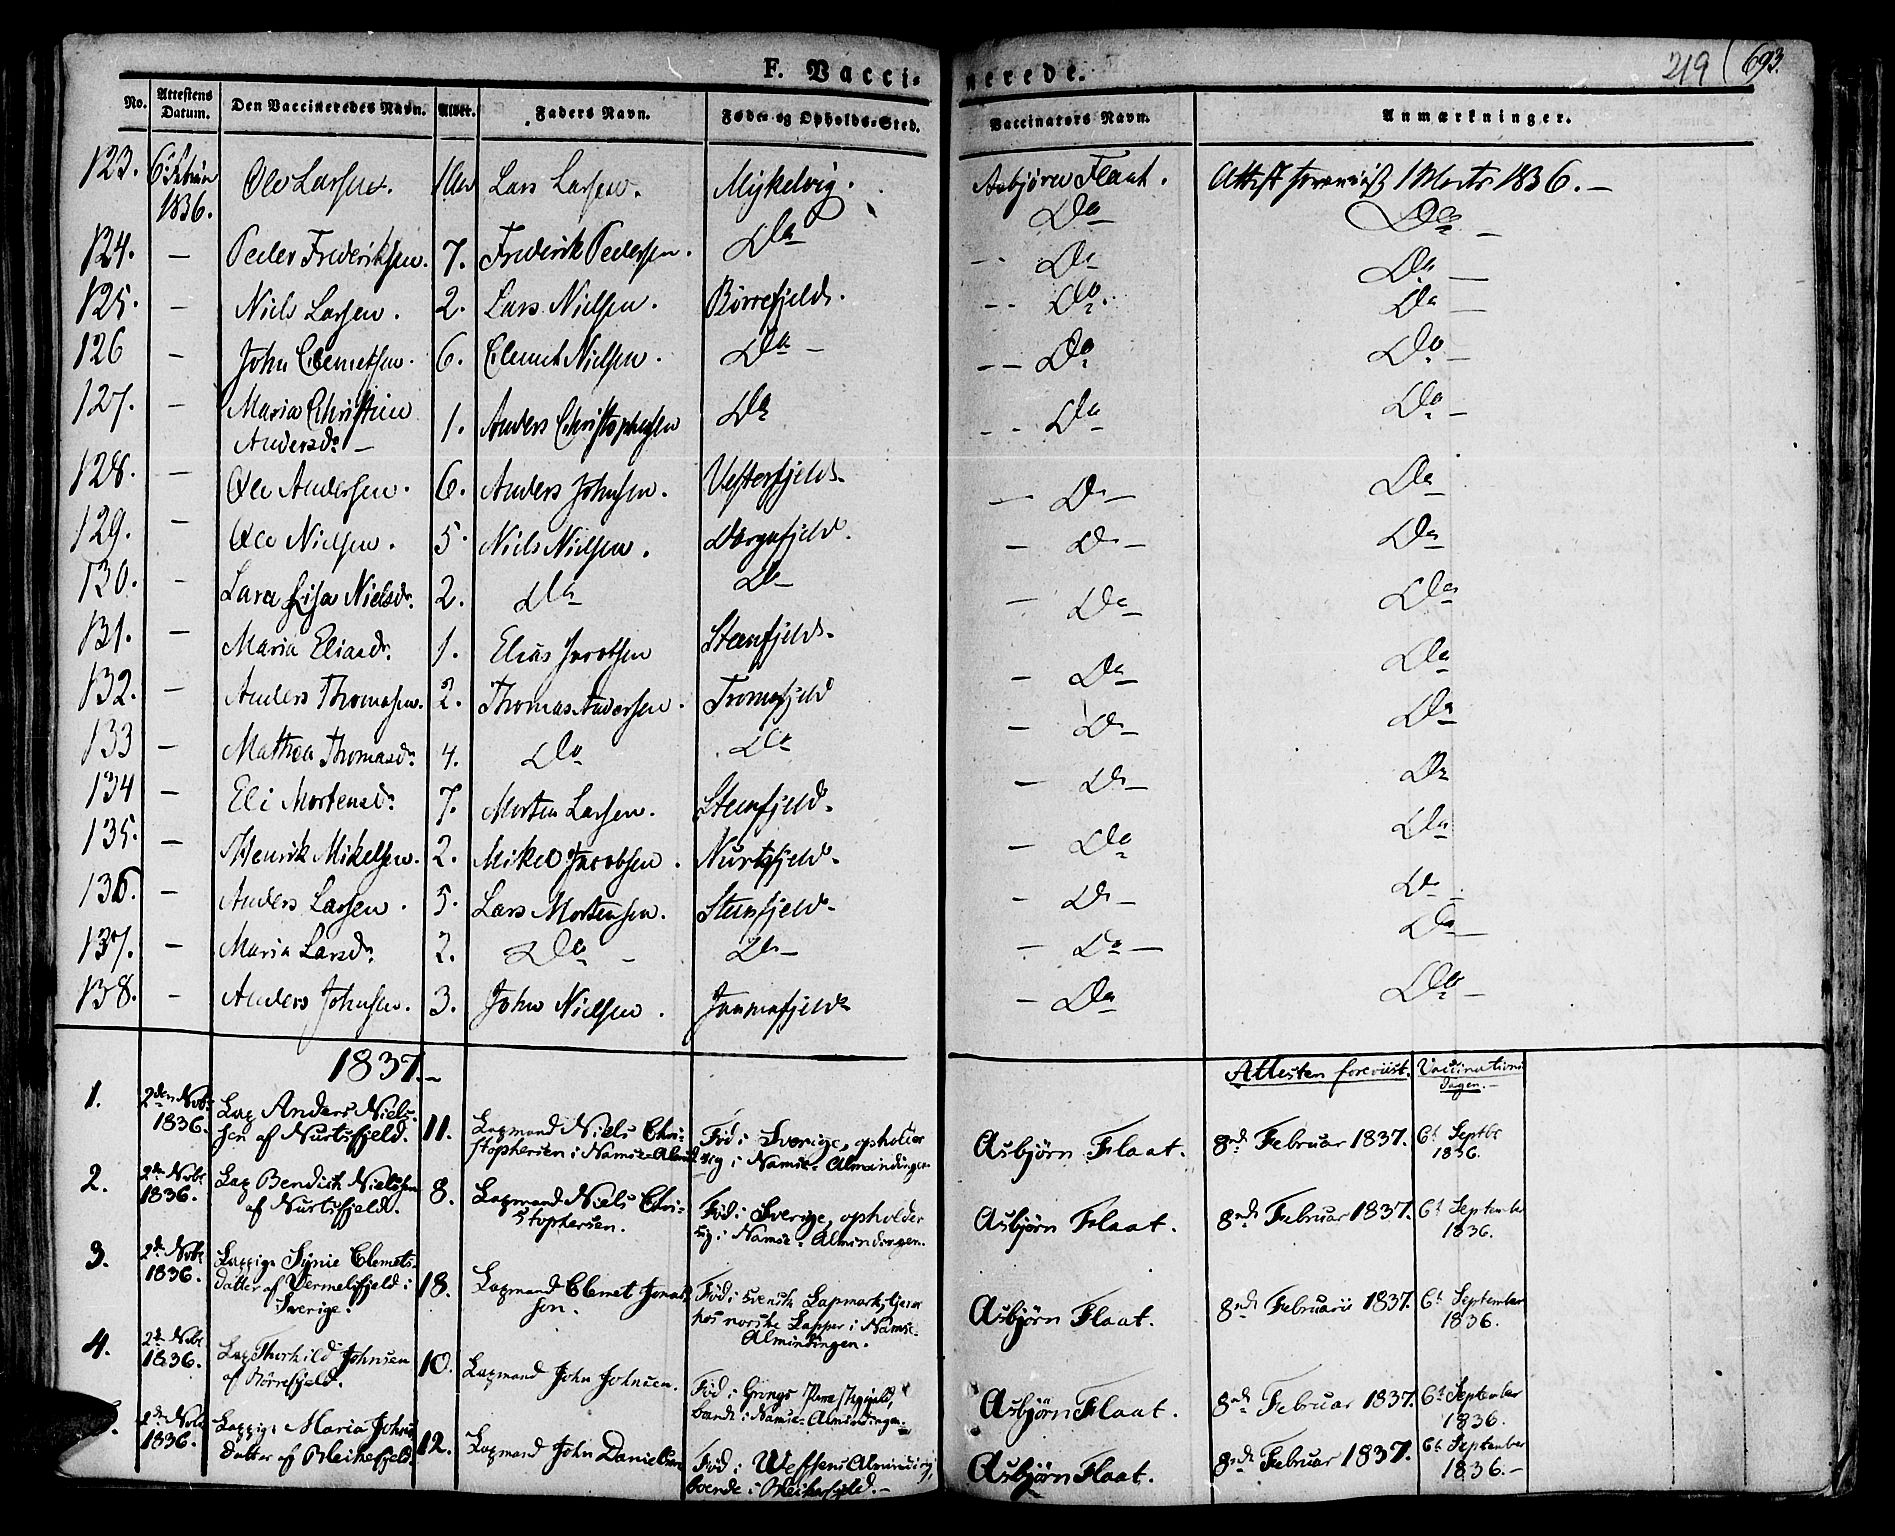 F. Vaccinerede.
219 (693.
No. Attestens Datum. Den Vaccineredes Navn. Alder. Faders Navn. Føde- og Opholds-Sted. Vaccinators Navn. Anmærkninger.
123. 6t Februar 1836. Ole Larsen. Lars Larsen. Mykelvig. Asbjørn Flaat. Attest foreviist 1 Marts 1836. —
124. — Peder Frederiksen. 7. Frederik Pedersen. Do Do Do —
125. — Niels Larsen. 2. Lars Nielsen. Børrefjeld. -- Do Do —
126 — John Clemetsen. 6. Clemet Nielsen. Do — -- Do. Do —
127. — Maria Christine Andersdr — 1. Anders Christophersen Do -- Do Do —
128. — Ole Andersen. 6. Anders Johnsen. Vesterfjeld. — Do — Do
129. — Ole Nielsen. 5. Niels Nielsen. Dorgafjeld. — Do — Do
130. — Lara Lisa Nielsdr. 2. Do Do — Do Do
131. — Maria Eliasdr. 1. Elias Jacobsen Steenfjeld. — Do Do
132. — Anders Thomasen. 2. Thomas Andersen. Tromsfjeld — Do Do
133 — Mathea Thomasdr. 4. Do Do — Do — Do
134 — Eli Mortensdr. 7. Morten Larsen. Steenfjeld. — Do Do
135. — Henrik Mikelsen. 2. Mikel Jacobsen. Nurtsfjeld. — Do — Do
136. — Anders Larsen. 5. Lars Mortensen. Steenfjeld. — Do — Do —
137. — Maria Larsdr. 2. Do — Do — — Do — Do —
138. — Anders Johnsen. 3. John Nielsen. — Do
1837. —
Attesten foreviist. Vaccinations Dagen. —
1. 2den Novbr 1836. Lap Anders Nielssen af Nurtsfjeld. 11. Lapmand Niels Christophersen i Namse-Almd. Fød i Sverige, opholder sig i Namse-Almindingen Asbjørn Flaat. 8nde Februar 1837. 6t Septbr 1836.
2. 2de Novbr 1836. Lap Bendich Nielssen af Nurtsfjeld. 8. Lapmand Niels Christophersen. Fød i Sverige, opholder sig i Namse-Almindingen. Asbjørn Flaat. 8nde Februar 1837. 6t September 1836.
3. 2de Novbr 1836. Lappige Synie Clemetsdatter af Vermelifjeld i Sverige. 18. Lapmand Clemet Jonassen. Fød i svensk Lapmark, tjener hos norske Lapper i Namse-Almindingen. Asbjørn Flaat. 8nde Februarii 1837. 6t September 1836.
4. 2de Novbr 1836. Lap Thorkild Johnsen af Børrefjeld. 10. Lapmand John Johnsen. Fød i Grongs Præstegjeld, boende i Namse-Almindingen. Asbjørn Flaat. 8nde Februar 1837. 6t September 1836.
2de Novbr 1836. Lappige Maria Johnsdatter af Bleikefjeld. 12. Lapmand John Danielsen Fød i Wefsens Alminding, boende i Bleikefjeld. — Asbjørn Flaat. 8nde Februar 1837. 6t September 1836. —